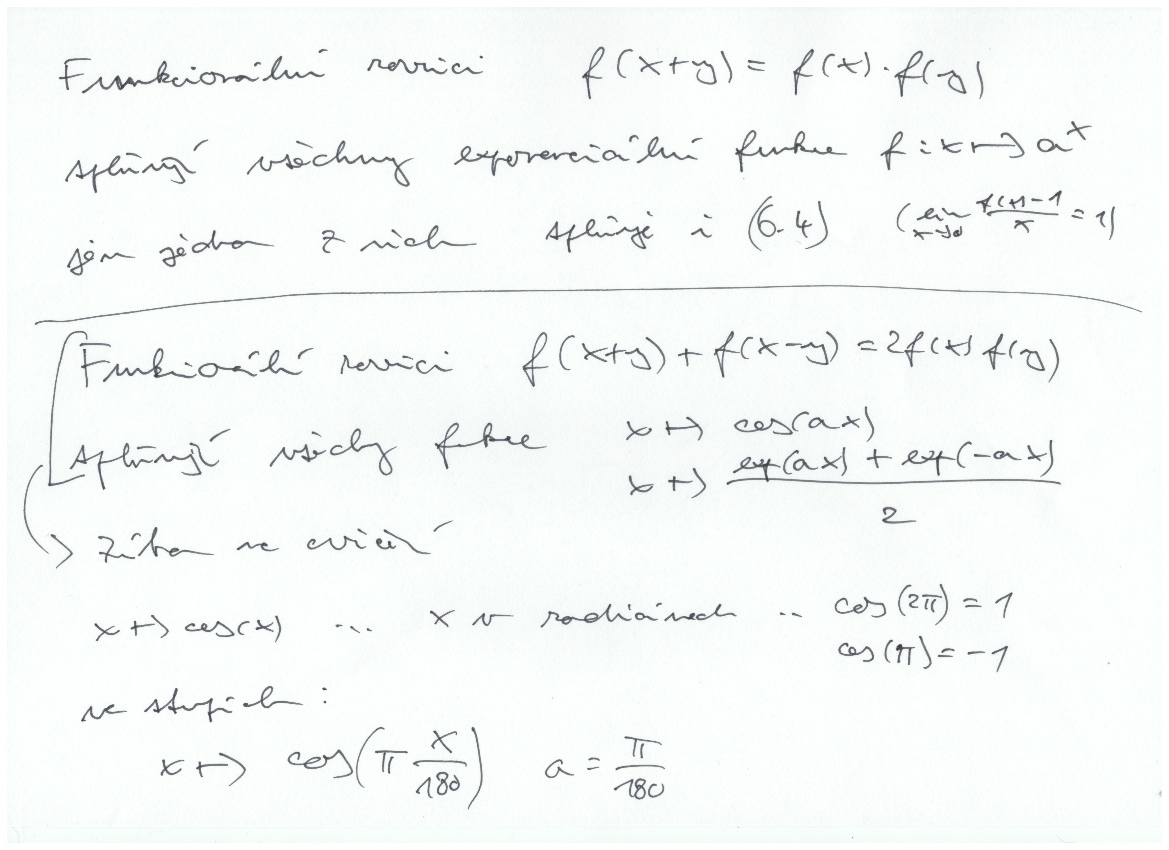 Funkcionální rovnici f(x+y) = f(x)·f(y)
splňují všechny exponenciální funkce f: x ↦ a^x
jen jedna z nich splňuje i (6.4) (lim_{x→0} \frac{f(x)-1}{x} = 1)
Funkcionální rovnici f(x+y) + f(x-y) = 2f(x) f(y)
splňují všechny funkce x ↦ cos(ax)
x ↦ \frac{exp(ax) + exp(-ax)}{2}
→ na cvičení
x ↦ cos(x) ... x v radiánech .. cos(2π) = 1
cos(π) = -1
ve stupních:
x ↦ cos(π \frac{x}{180}) a = \frac{π}{180}